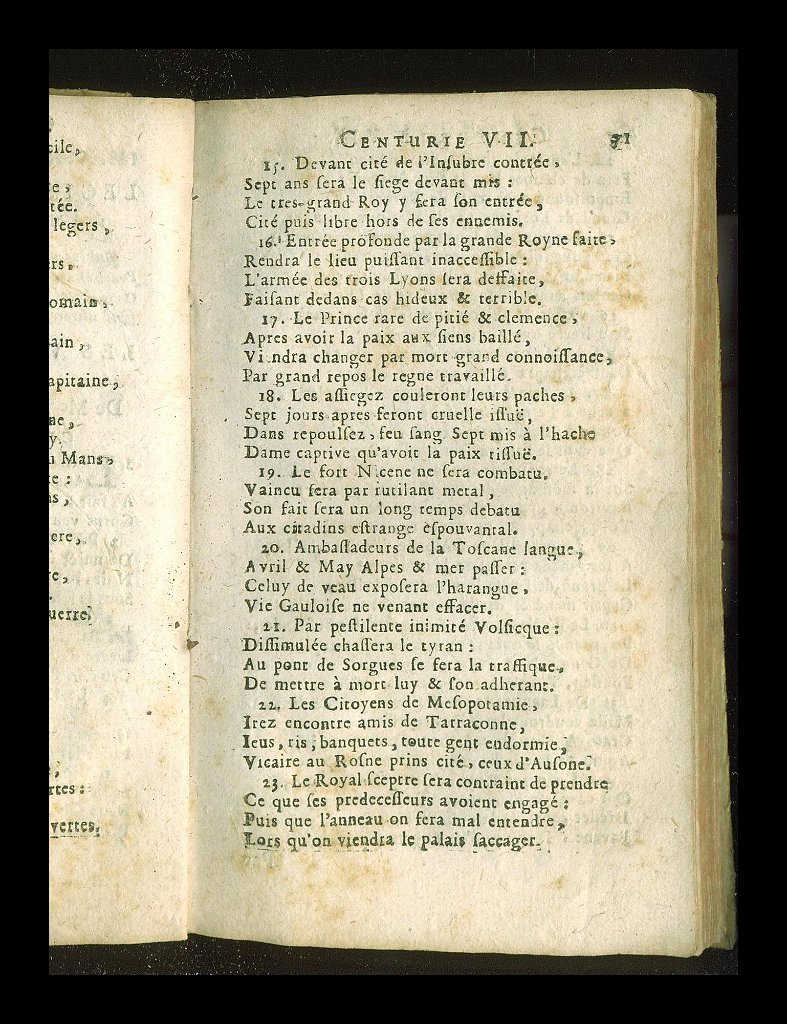 cile,
te,
tée.
legers,
ers,
omain,
ain,
apitaine,
ne,
y.
Mans,
te :
s,
ere,
e,
uerre,
,
rtes :
vertes,
CENTURIE VII. 71
15. Devant cité de l'Insubre contrée,
Sept ans sera le siege devant mis :
Le tres-grand Roy y fera son entrée,
Cité puis libre hors de ses ennemis.
16. Entrée profonde par la grande Royne faite,
Rendra le lieu puissant inaccessible :
L'armée des trois Lyons sera deffaite,
Faisant dedans cas hideux & terrible.
17. Le Prince rare de pitié & clemence,
Apres avoir la paix aux siens baillé,
Viendra changer par mort grand connoissance,
Par grand repos le regne travaillé.
18. Les assiegez couleront leurs paches,
Sept jours apres feront cruelle issuë,
Dans repoulsez, feu sang. Sept mis à l'hache
Dame captive qu'avoit la paix tissuë.
19. Le fort Nicene ne sera combatu.
Vaincu sera par rutilant metal,
Son fait sera un long temps debatu
Aux citadins estrange espouvantal.
20. Ambassadeurs de la Toscane langue,
Avril & May Alpes & mer passer :
Celuy de veau exposera l'harangue,
Vie Gauloise ne venant effacer.
21. Par pestilente inimité Volsicque :
Dissimulée chassera le tyran :
Au pont de Sorgues se fera la traffique,
De mettre à mort luy & son adherant.
22. Les Citoyens de Mesopotamie,
Irez encontre amis de Tarraconne,
Ieus, ris, banquets, toute gent endormie,
Vicaire au Rosne prins cité, ceux d'Ausone.
23. Le Royal sceptre sera contraint de prendre
Ce que ses predecesseurs avoient engagé :
Puis que l'anneau on fera mal entendre,
Lors qu'on viendra le palais saccager.